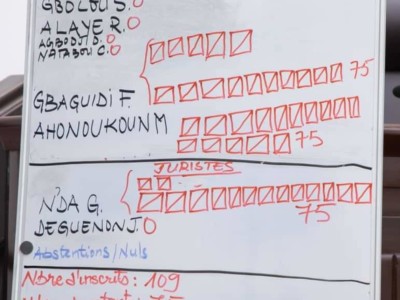 GBOLOU S. 0
ALAYE R. 0
AGBODJI D. 0
NATABOU C. 0
GBAGUIDI F. 75
AHONOUKOUN M 75
JURISTES
N'DA G. 75
DEGUENON J. 0
Abstentions/Nuls
Nbre d'inscrits : 109